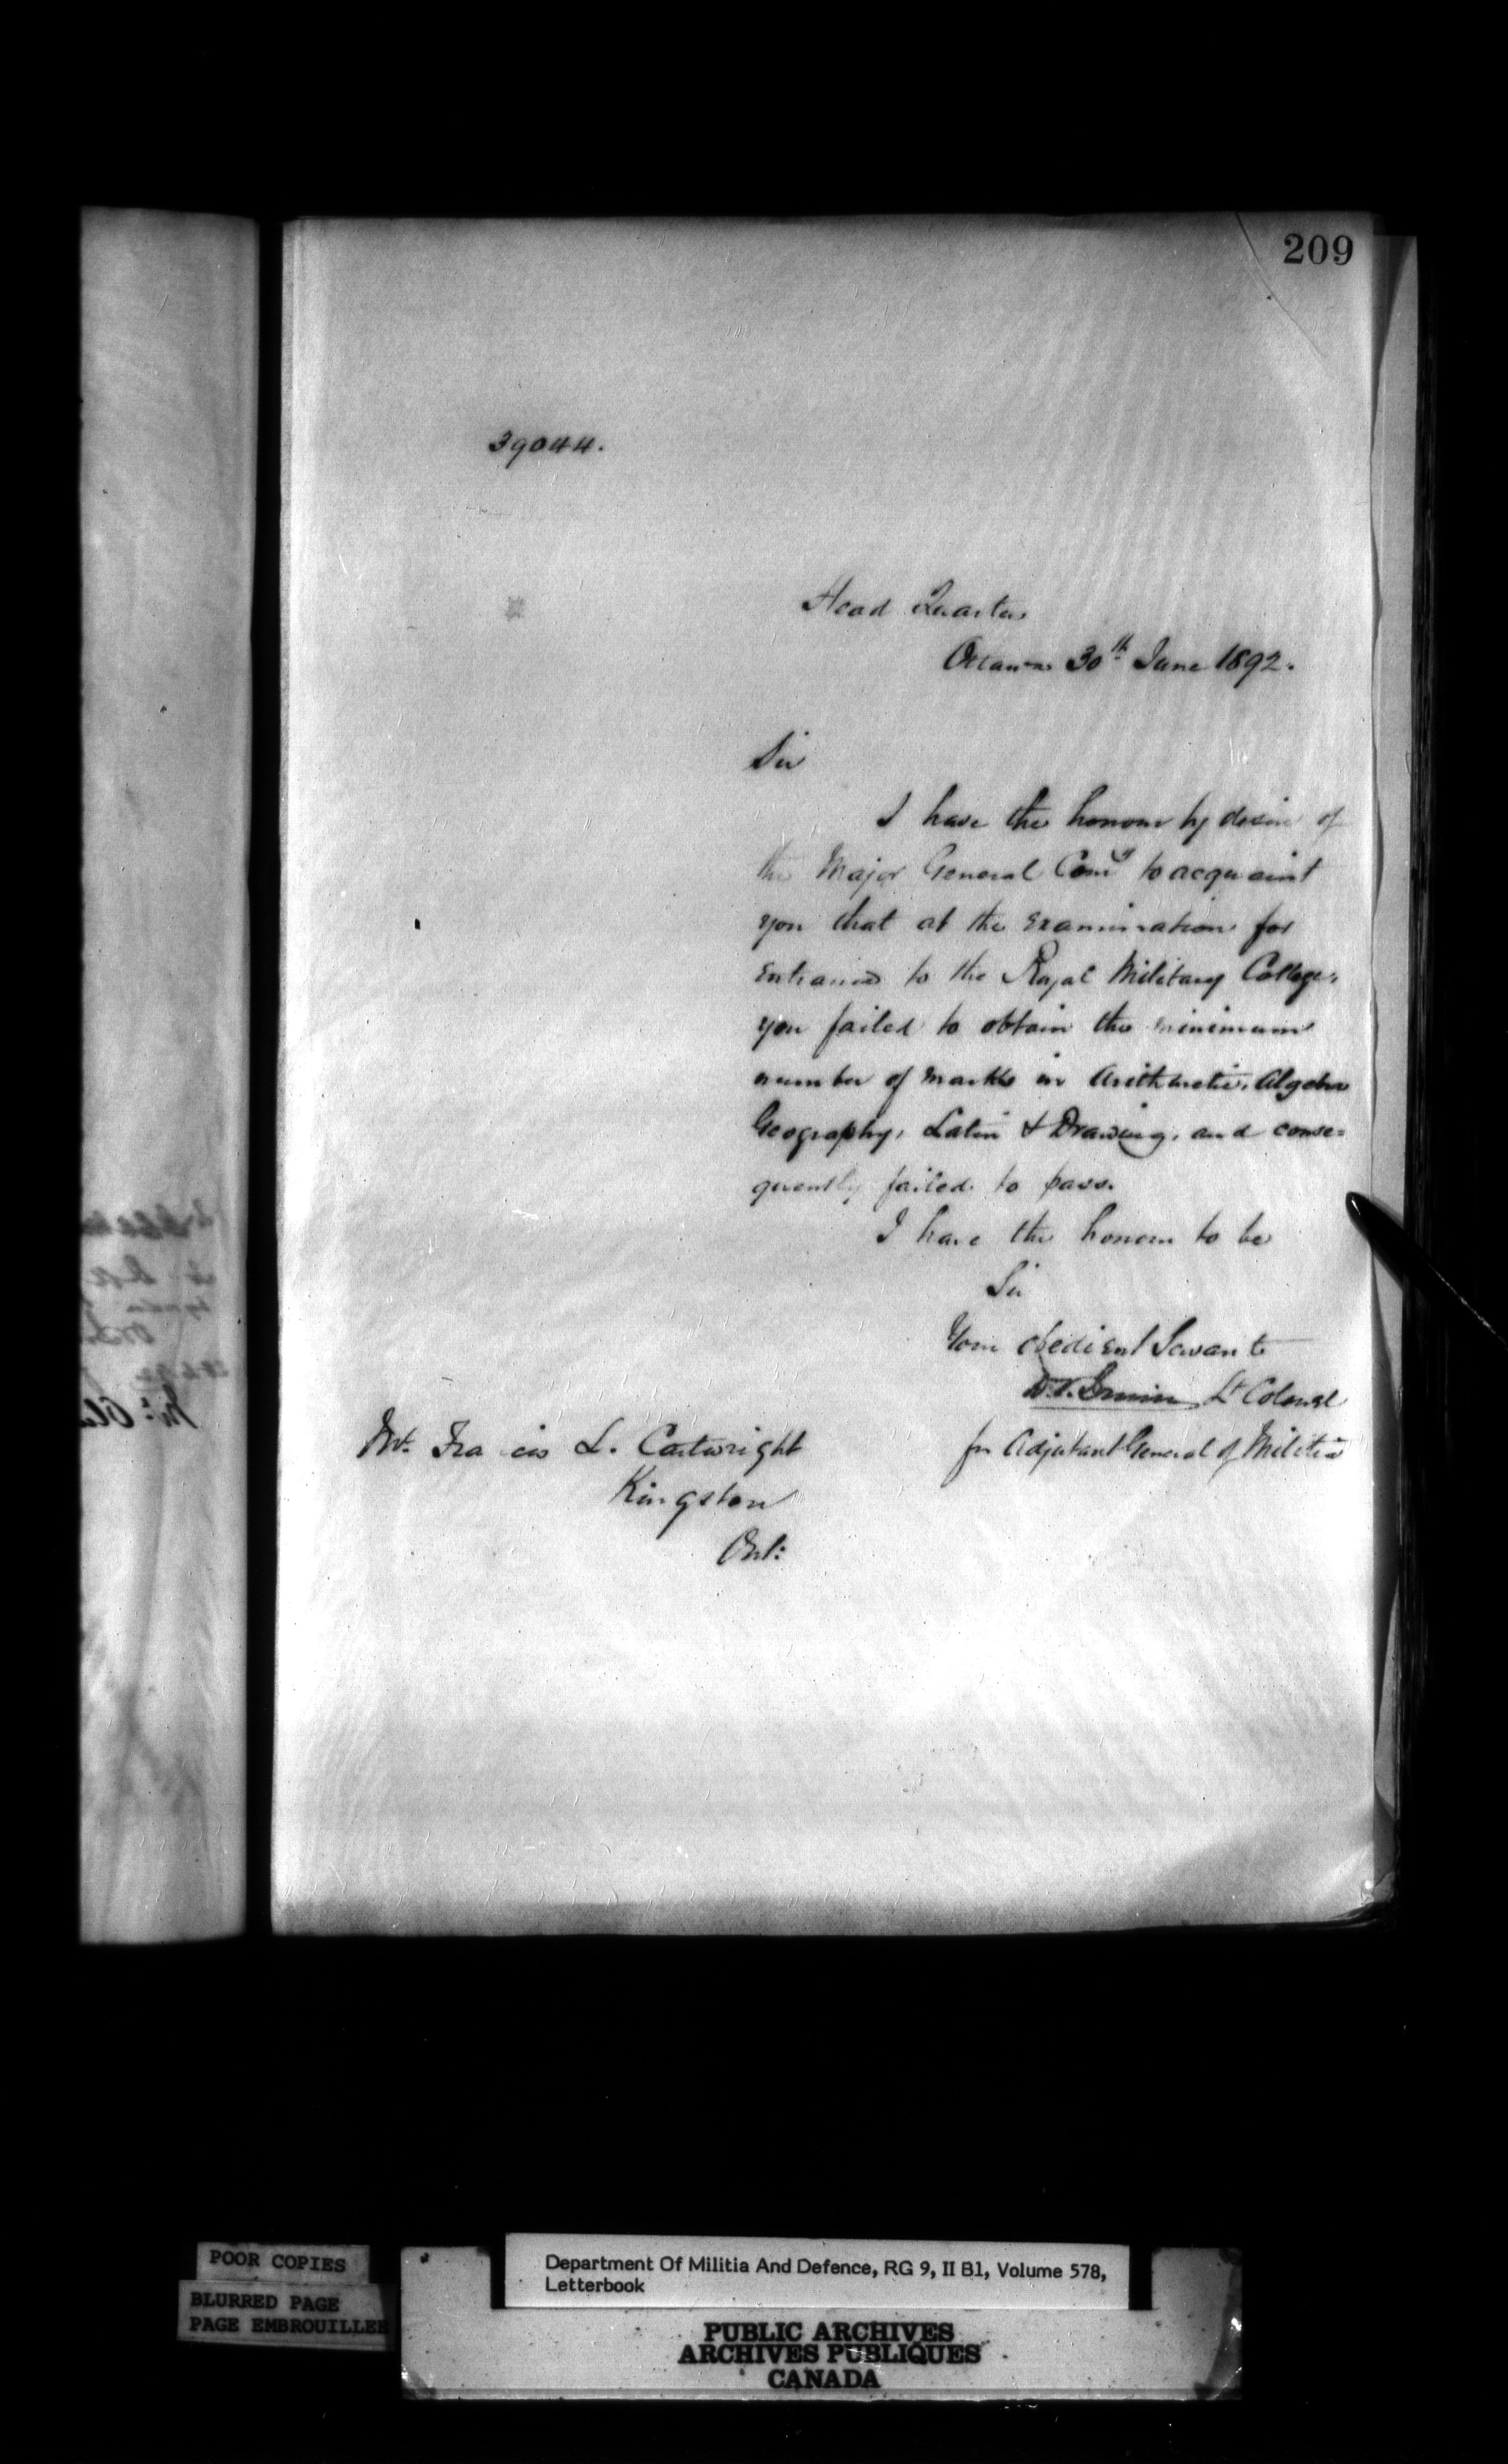 209
39044.
Head Quarters
Ottawa 30th June 1892.
Sir
I have the honour by desire of
the Major General Comg to acquaint
you that at the Examination for
Entrance to the Royal Military College,
you failed to obtain the minimum
number of marks in Arithmetic, Algebra
Geography, Latin & Drawing, and conse=
quently failed to pass.
I have the honour to be
Sir
Your obedient Servant
Lt Colonel
for Adjutant General of Militia
Mr. Francis L. Cartwright
Kingston
Ont:
POOR COPIES
BLURRED PAGE
PAGE EMBROUILLEE
Department Of Militia And Defence, RG 9, II B1, Volume 578,
Letterbook
PUBLIC ARCHIVES
ARCHIVES PUBLIQUES
CANADA